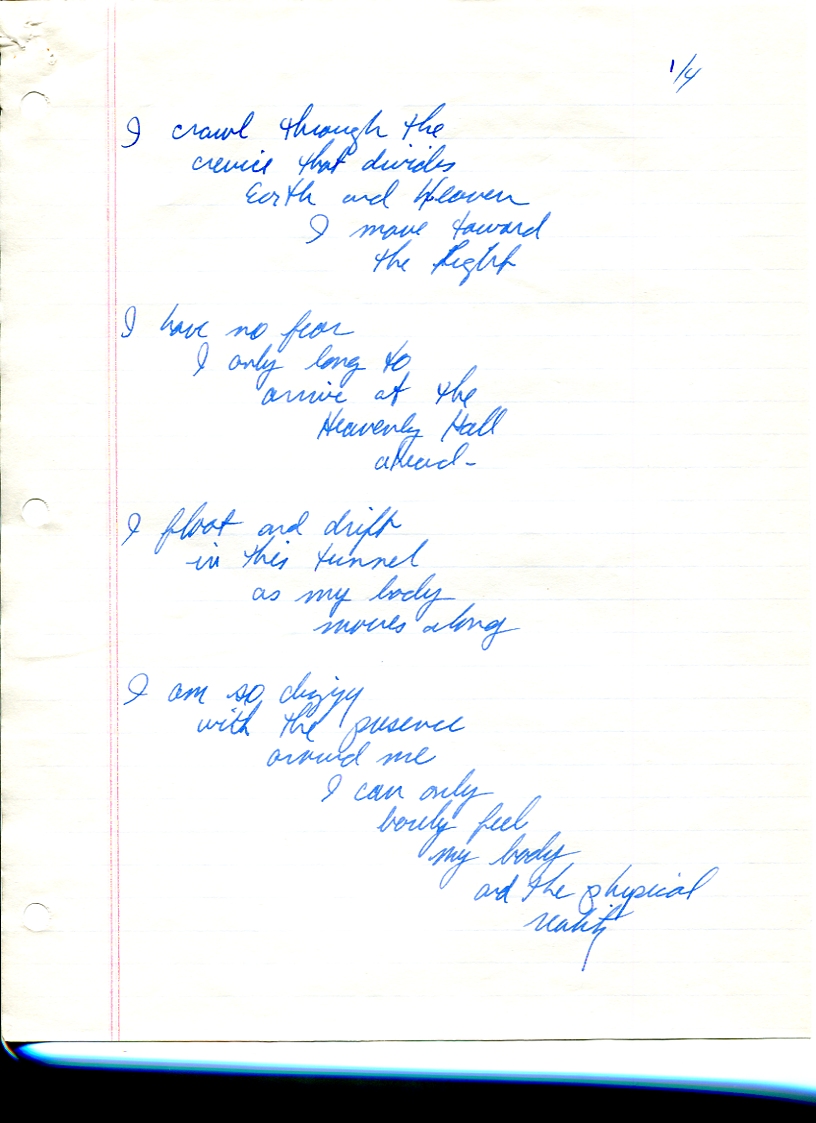 1/4
I crawl through the
crevice that divides
Earth and Heaven
I move toward
the Right
I have no fear
I only long to
arrive at the
Heavenly Hall
ahead-
I float and drift
in this tunnel
as my body
moves along
I am so dizzy
with the presence
around me
I can only
barely feel
my body
and the physical
reality